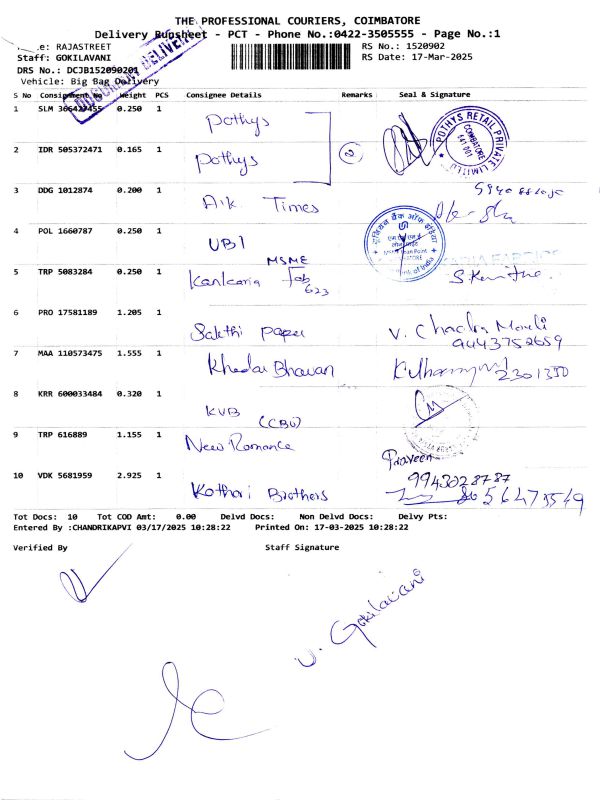 THE PROFESSIONAL COURIERS, COIMBATORE
Delivery Runsheet - PCT - Phone No.:0422-3505555 - Page No.:1
e: RAJASTREET RS No.: 1520902
Staff: GOKILAVANI RS Date: 17-Mar-2025
DRS No.: DCJB152090201
Vehicle: Big Bag Delivery
S No Consignment No Weight PCS Consignee Details Remarks Seal & Signature
1 SLM 366427455 0.250 1 Pothys
POTHYS RETAIL PRIVATE LIMITED
COIMBATORE
641 001
2 IDR 505372471 0.165 1 Pothys 2
3 DDG 1012874 0.200 1 A.K. Times
4 POL 1660787 0.250 1 UBI
MSME
5 TRP 5083284 0.250 1 Kankaria Fab
623
6 PRO 17581189 1.205 1 Sakthi Paper V. Chandra Mouli
9443752659
7 MAA 110573475 1.555 1 Khedai Bhavan 2301350
8 KRR 600033484 0.320 1 KVB
(CBU)
9 TRP 616889 1.155 1 New Romance Praveen
9943028787
10 VDK 5681959 2.925 1 Kothari Brothers
Tot Docs: 10 Tot COD Amt: 0.00 Delvd Docs: Non Delvd Docs: Delvy Pts:
Entered By :CHANDRIKAPVI 03/17/2025 10:28:22 Printed On: 17-03-2025 10:28:22
Verified By Staff Signature
V. Gokilavani